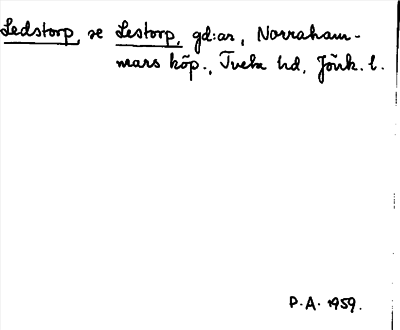 Ledstorp, se Lestorp, gd:ar, Norraham-
mars köp., Tveta hd, Jönk. l.
P.A. 1959.